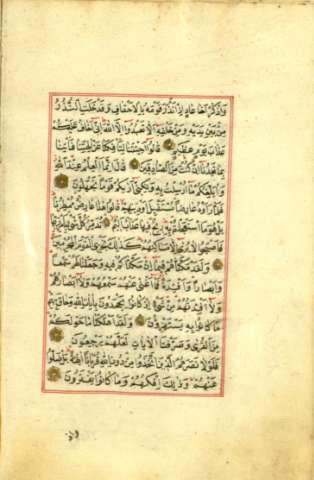 وَاذْكُرْ اَخَا عَادٍ اِذْ اَنْذَرَ قَوْمَهُ بِالْاَحْقَافِ وَقَدْ خَلَتِ النُّذُرُ
مِنْ بَيْنِ يَدَيْهِ وَمِنْ خَلْفِهِ اَلَّا تَعْبُدُوا اِلَّا اللّٰهَ اِنِّي اَخَافُ عَلَيْكُمْ
عَذَابَ يَوْمٍ عَظِيمٍ قَالُوا اَجِئْتَنَا لِتَاْفِكَنَا عَنْ اٰلِهَتِنَا فَاْتِنَا
بِمَا تَعِدُنَا اِنْ كُنْتَ مِنَ الصَّادِقِينَ قَالَ اِنَّمَا الْعِلْمُ عِنْدَ اللّٰهِ
وَاُبَلِّغُكُمْ مَا اُرْسِلْتُ بِهِ وَلٰكِنِّي اَرٰيكُمْ قَوْمًا تَجْهَلُونَ
فَلَمَّا رَاَوْهُ عَارِضًا مُسْتَقْبِلَ اَوْدِيَتِهِمْ قَالُوا هٰذَا عَارِضٌ مُمْطِرُنَا
بَلْ هُوَ مَا اسْتَعْجَلْتُمْ بِهِ رِيحٌ فِيهَا عَذَابٌ اَلِيمٌ تُدَمِّرُ كُلَّ شَيْءٍ بِاَمْرِ رَبِّهَا
فَاَصْبَحُوا لَا يُرٰى اِلَّا مَسَاكِنُهُمْ كَذٰلِكَ نَجْزِي الْقَوْمَ الْمُجْرِمِينَ
وَلَقَدْ مَكَّنَّاهُمْ فِيمَا اِنْ مَكَّنَّاكُمْ فِيهِ وَجَعَلْنَا لَهُمْ سَمْعًا
وَاَبْصَارًا وَاَفْئِدَةً فَمَا اَغْنٰى عَنْهُمْ سَمْعُهُمْ وَلَا اَبْصَارُهُمْ
وَلَا اَفْئِدَتُهُمْ مِنْ شَيْءٍ اِذْ كَانُوا يَجْحَدُونَ بِاٰيَاتِ اللّٰهِ وَحَاقَ بِهِمْ
مَا كَانُوا بِهِ يَسْتَهْزِؤُنَ وَلَقَدْ اَهْلَكْنَا مَا حَوْلَكُمْ
مِنَ الْقُرٰى وَصَرَّفْنَا الْاٰيَاتِ لَعَلَّهُمْ يَرْجِعُونَ
فَلَوْلَا نَصَرَهُمُ الَّذِينَ اتَّخَذُوا مِنْ دُونِ اللّٰهِ قُرْبَانًا اٰلِهَةً بَلْ ضَلُّوا
عَنْهُمْ وَذٰلِكَ اِفْكُهُمْ وَمَا كَانُوا يَفْتَرُونَ